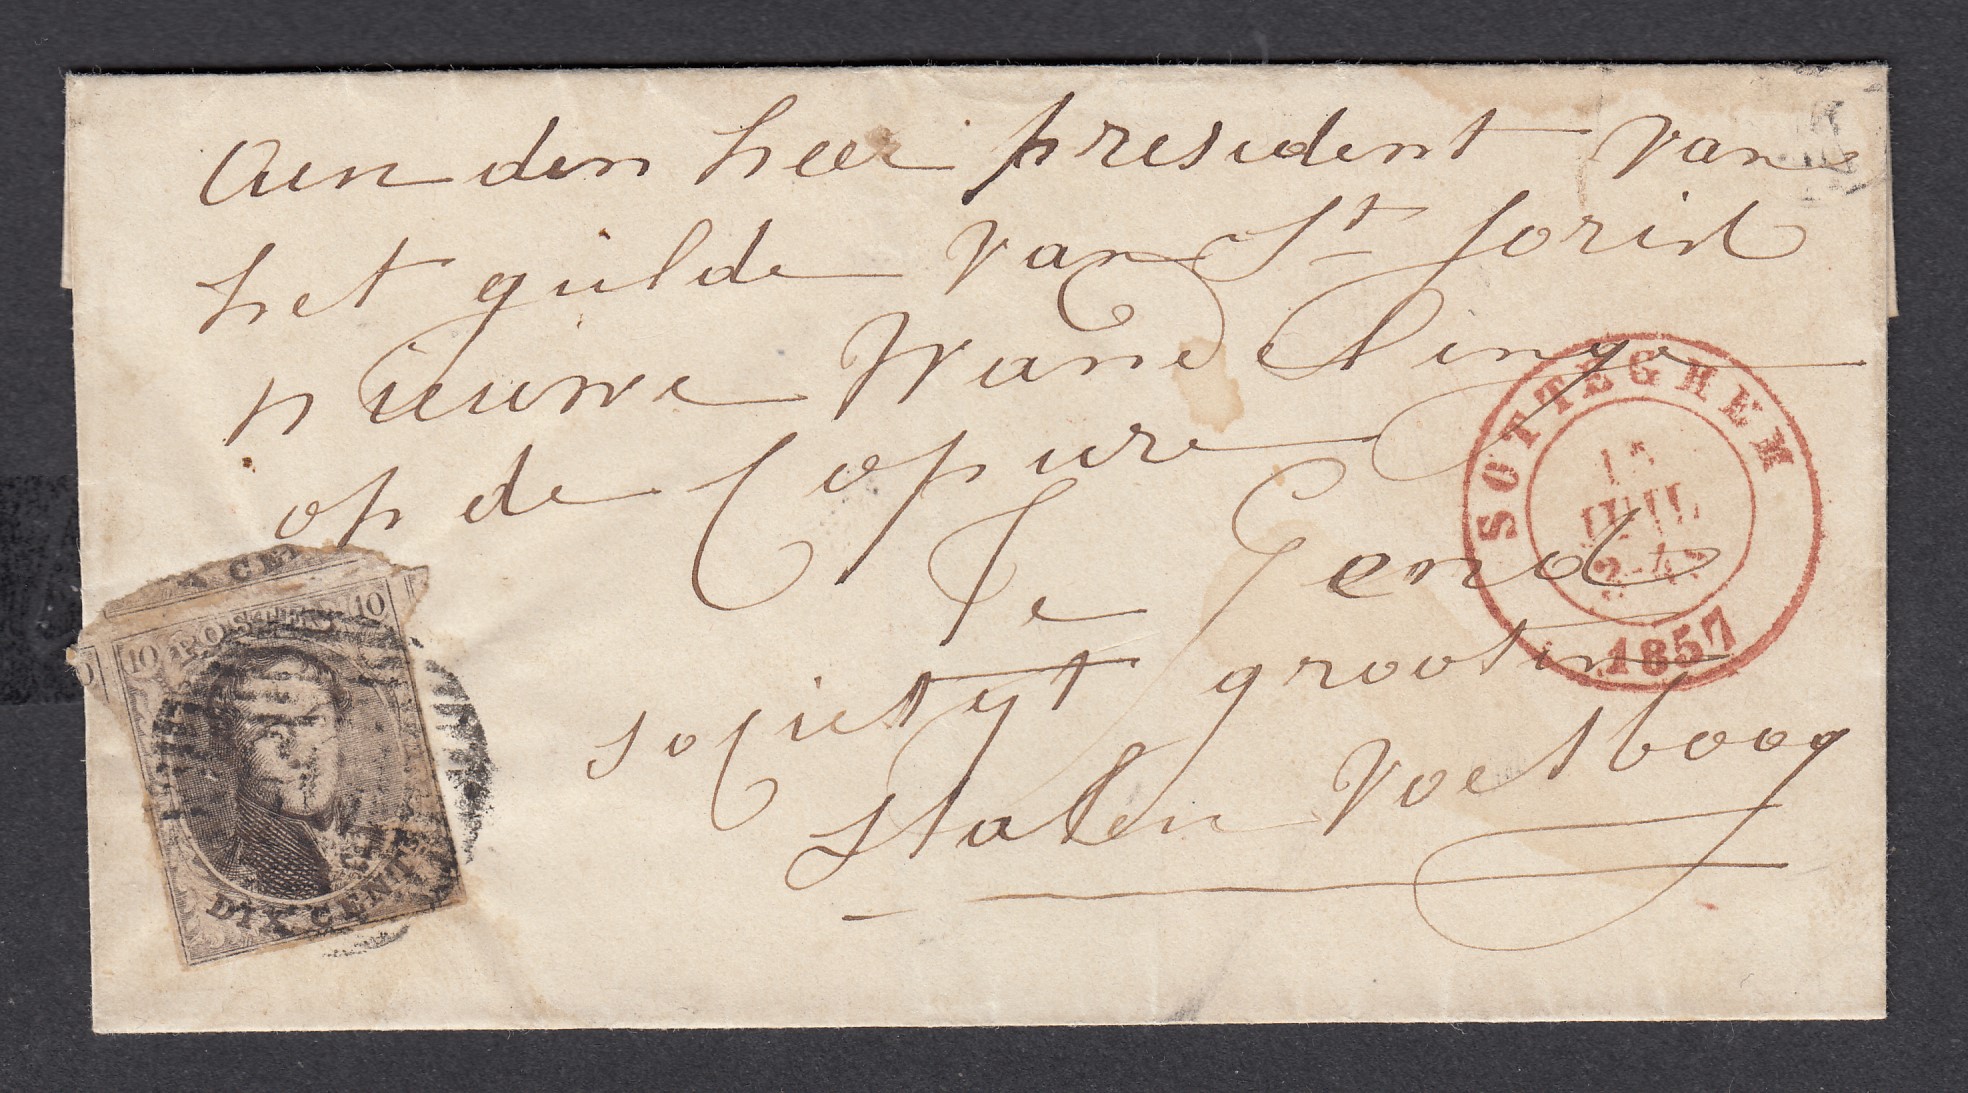 Aen den heer president van
het guilde van St joris
nieuwe Wandelinge
op de Copure
Te Gend
societyt grooten
stalen voetboog
SOTTEGHEM
15
JUIL
2-4
1857
X CE
POSTES
10
10
DIX CENTS